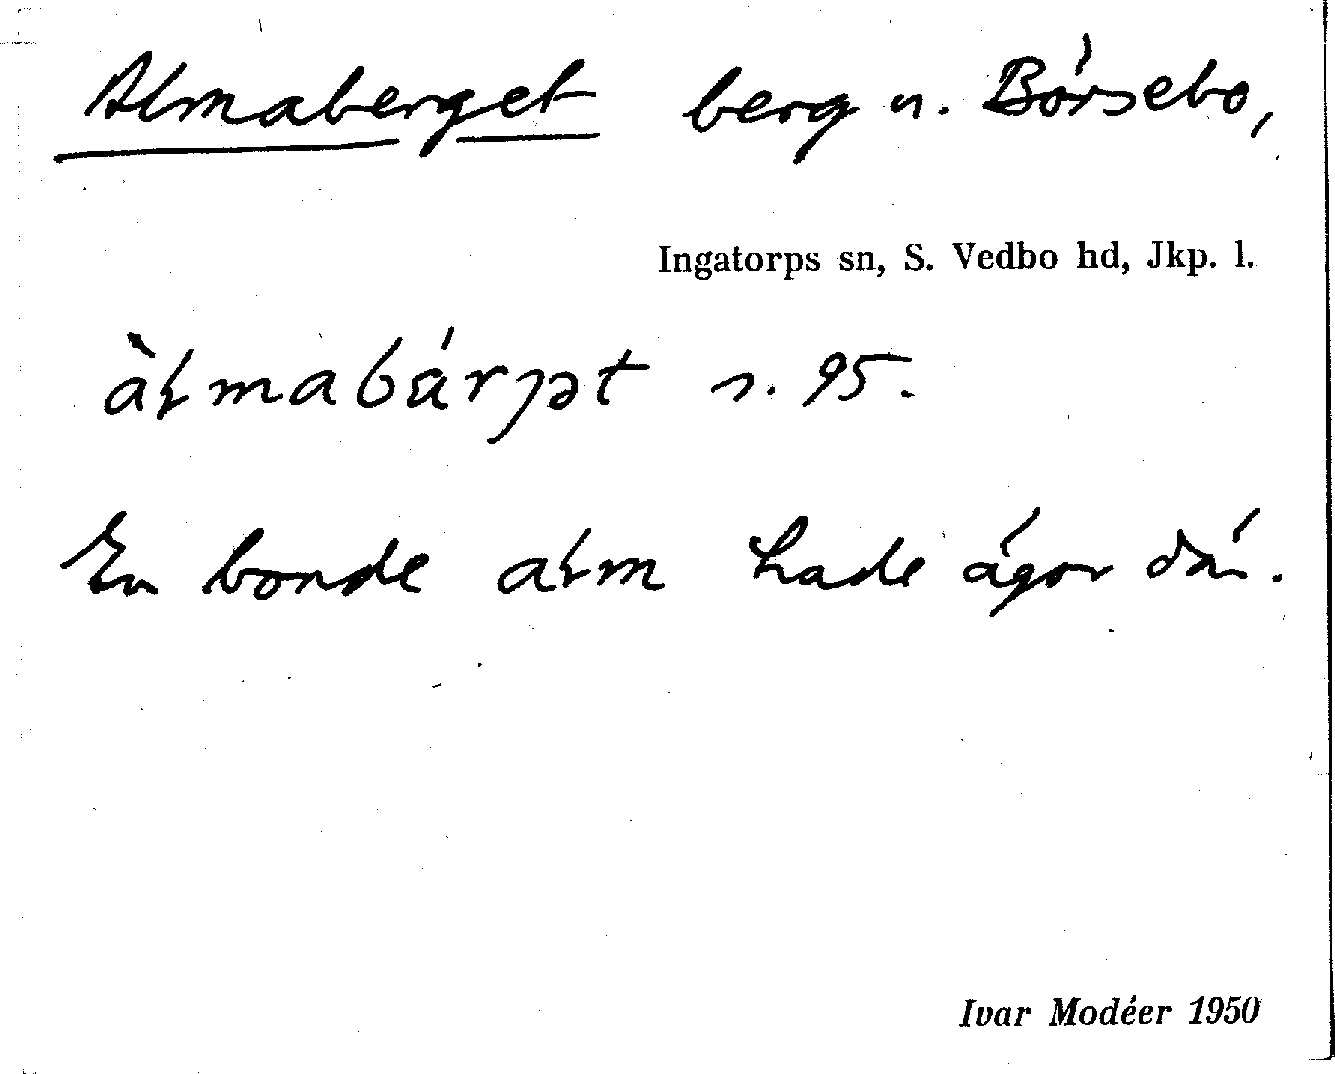 Almaberget berg n. Börsebo,
Ingatorps sn, S. Vedbo hd, Jkp. l.
àɫmabárjət n. 95.
En bonde aɫm hade ágor dá̈r.
Ivar Modéer 1950